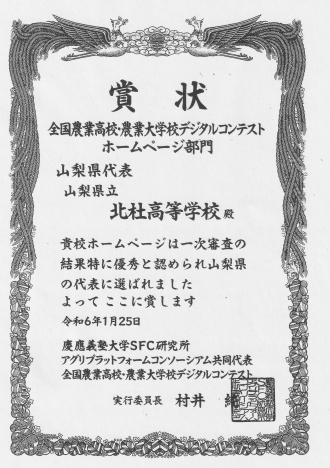 賞状
全国農業高校・農業大学校デジタルコンテスト
ホームページ部門
山梨県代表
山梨県立
北杜高等学校 殿
貴校ホームページは一次審査の
結果特に優秀と認められ山梨県
の代表に選ばれました
よって ここに賞します
令和6年1月25日
慶應義塾大学SFC研究所
アグリプラットフォームコンソーシアム共同代表
全国農業高校・農業大学校デジタルコンテスト
実行委員長 村井 純